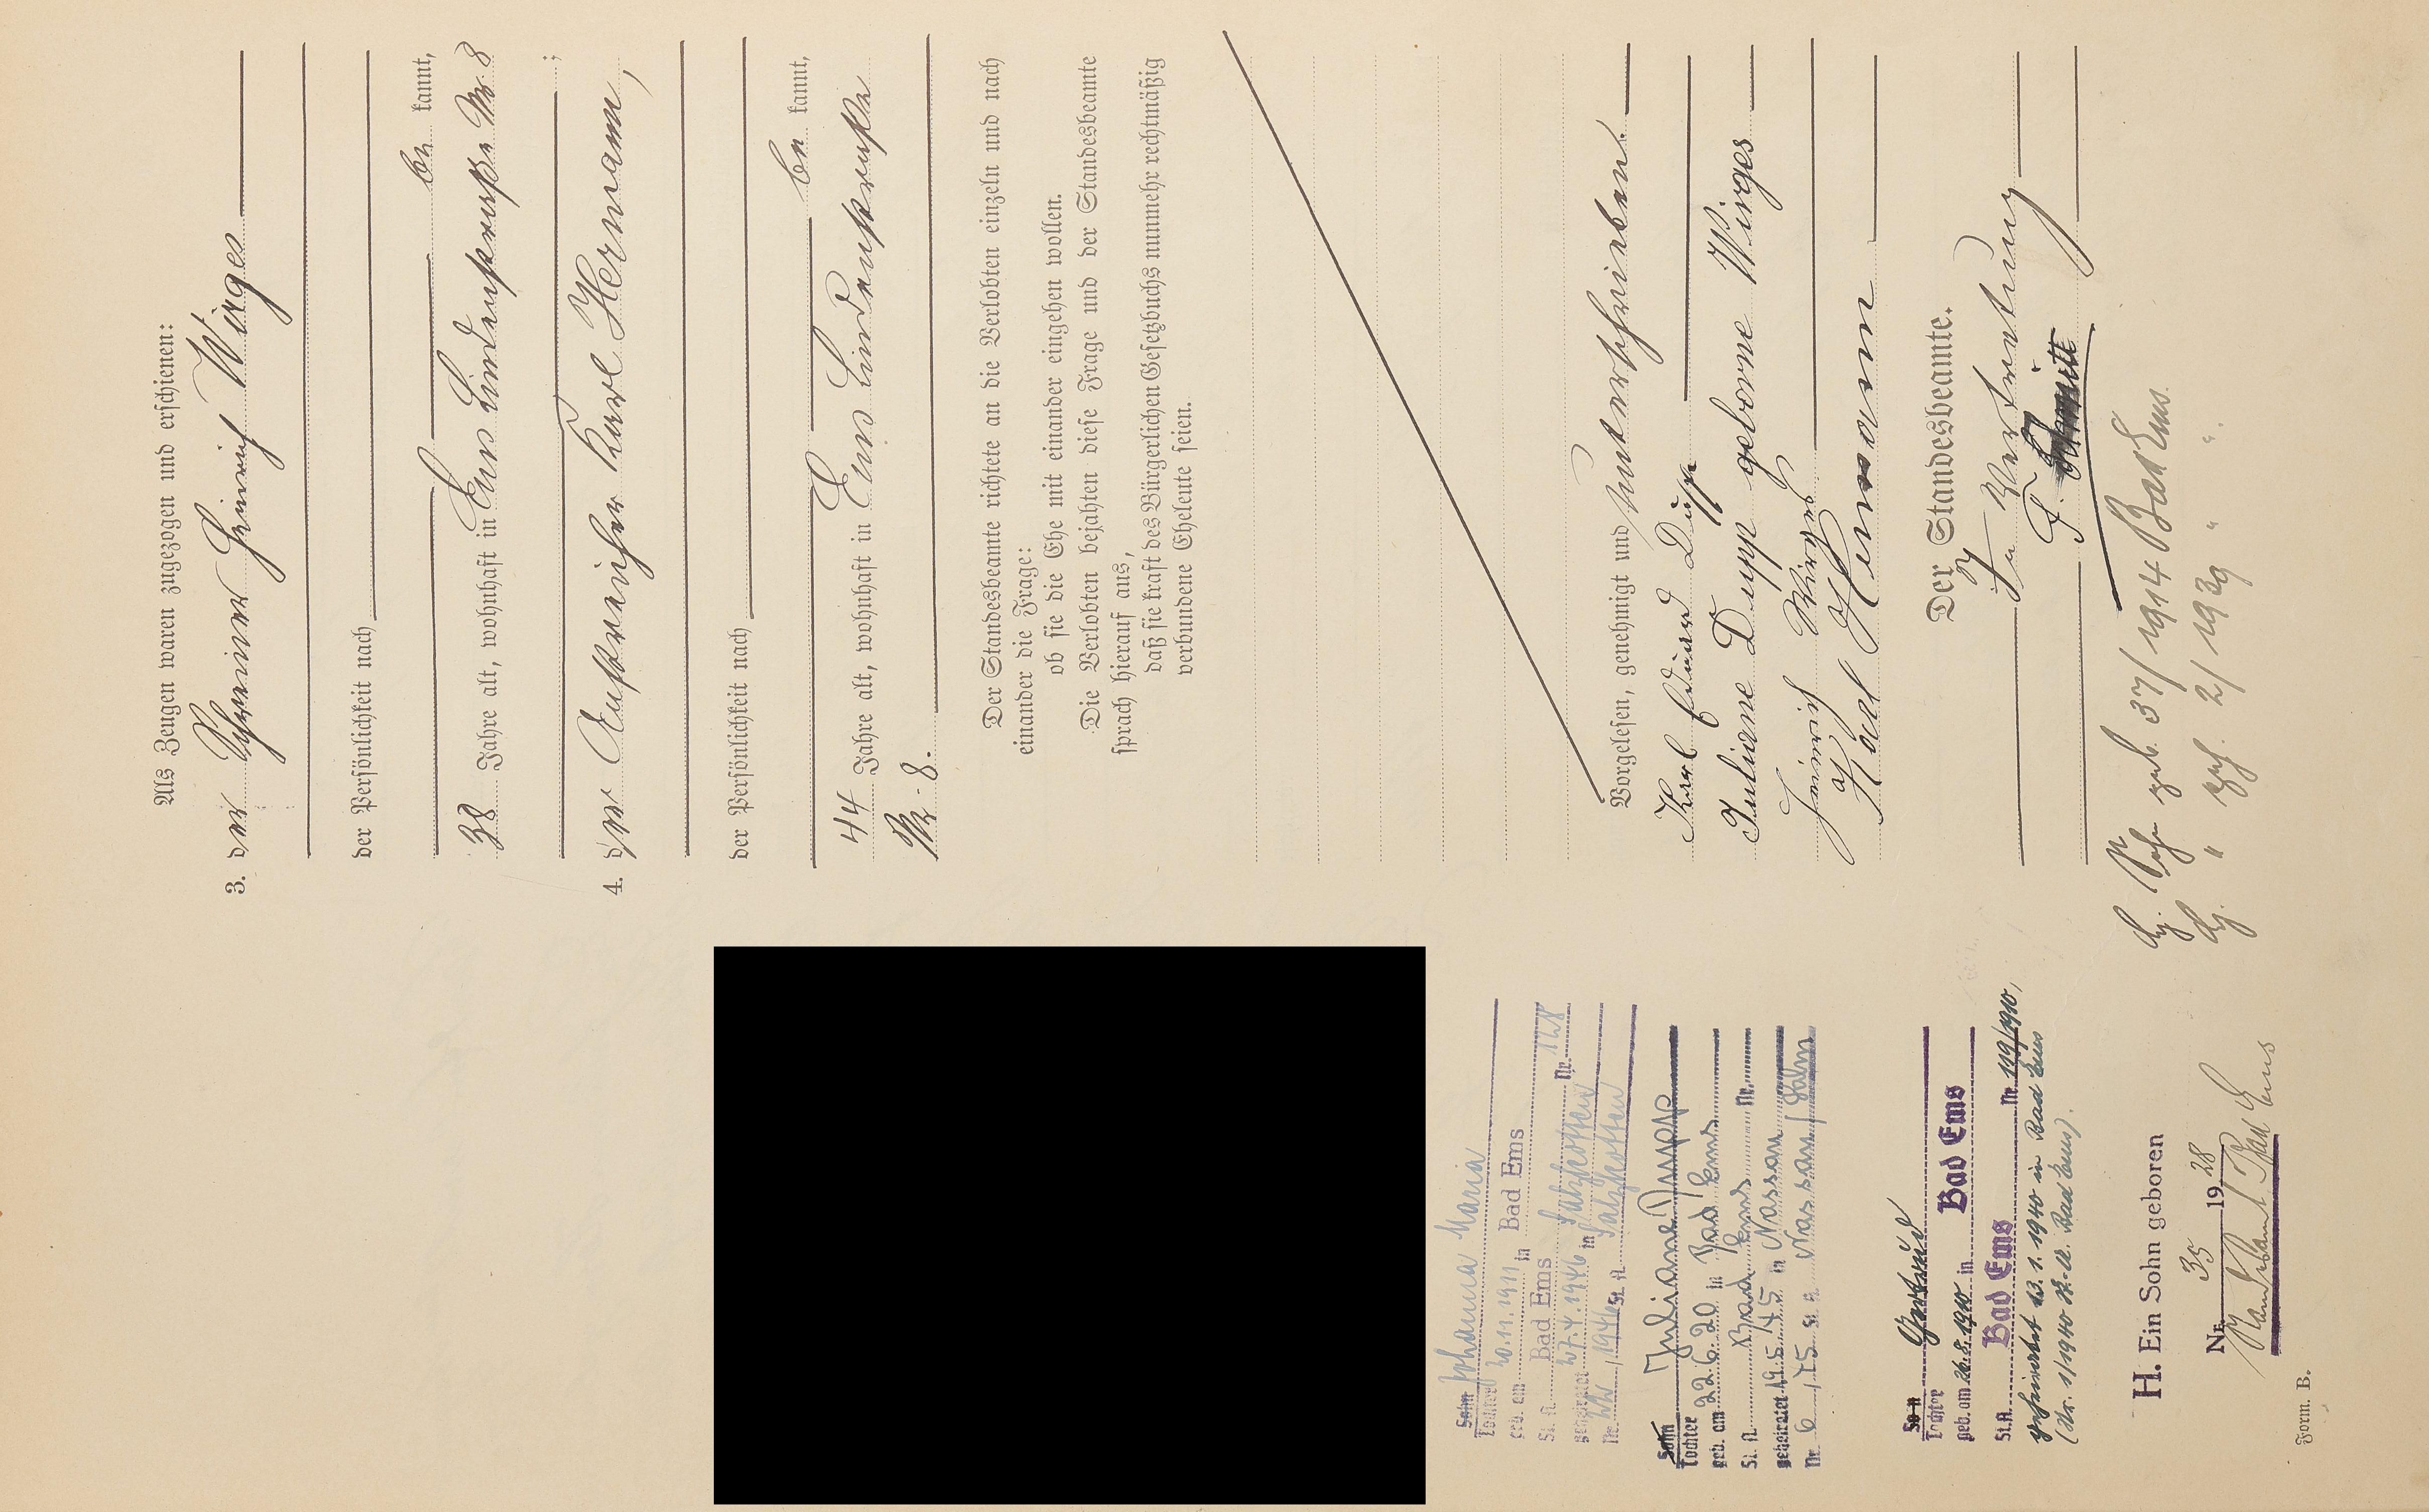 Als Zeugen waren zugezogen und erschienen:
3. der Schreiner Heinrich Wirges
der Persönlichkeit nach
be kannt,
38 Jahre alt, wohnhaft in Ems Lindenstraße Nr. 8
;
4. der Anstreicher Karl Hermann,
der Persönlichkeit nach
be kannt,
44 Jahre alt, wohnhaft in Ems Lindenstraße
Nr. 8.
Der Standesbeamte richtete an die Verlobten einzeln und nach
einander die Frage:
ob sie die Ehe mit einander eingehen wollen.
Die Verlobten bejahten diese Frage und der Standesbeamte
sprach hierauf aus,
daß sie kraft des Bürgerlichen Gesetzbuchs nunmehr rechtmäßig
verbundene Eheleute seien.
Vorgelesen, genehmigt und unterschrieben.
Karl Eduard Dupp
Juliane Dupp geborne Wirges
Heinrich Wirges
Karl Hermann
Der Standesbeamte.
In Vertretung
F. Schmitt
Sohn geb. 37/1914 Bad Ems.
" 2/1939 " "
Sohn Johanna Maria
Tochter
geb. am 20.11.1911 in Bad Ems
St. A. Bad Ems Nr. 128
geheiratet 27.4.1946 in Salzkotten
Nr. , 1946 St. A. Salzkotten
Sohn Juliane Dupp
Tochter
geb. am 22.6.20 in Bad Ems
St. A. Bad Ems Nr.
geheiratet 19.5.45 in Nassau
Nr. 6, 45 St. A. Nassau/Lahn
Sohn Gertrud
Tochter
geb. am 26.8.1910 in Bad Ems
St. A. Bad Ems Nr. 119/1910,
geheiratet 13.1.1940 in Bad Ems
(Nr. 1/1940 St.-A. Bad Ems).
H. Ein Sohn geboren
Nr. 35 1928
Standesamt Bad Ems
Form. B.